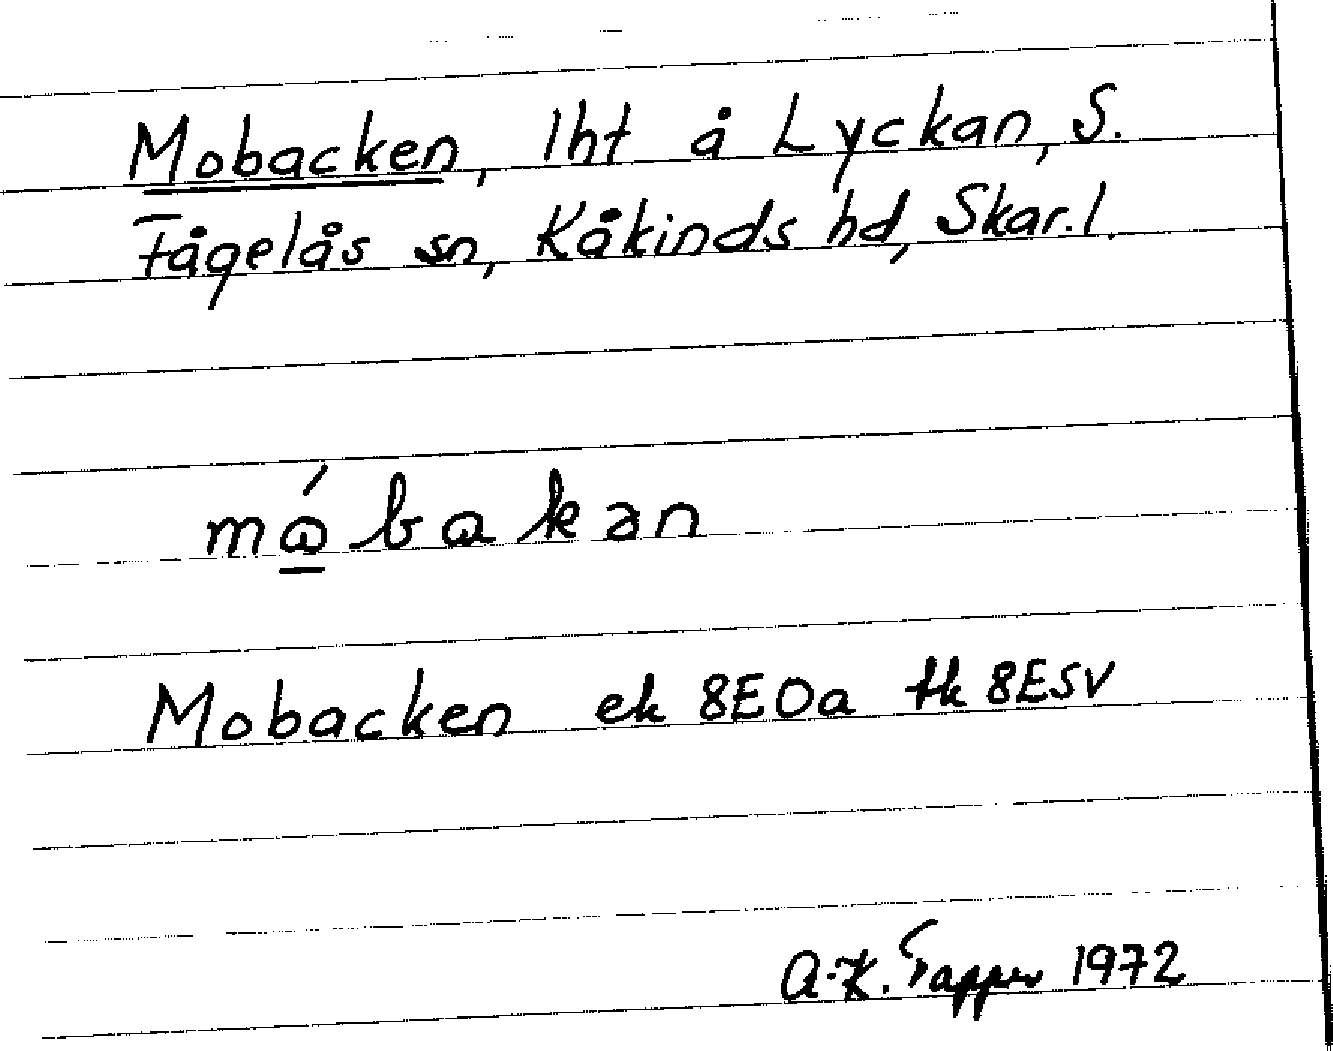 Mobacken, lht å Lyckan, S.
Fågelås sn, Kåkinds hd, Skar.l.
mǻ̲bakən
Mobacken ek 8E0a tk 8E5v
A-K. Tapper 1972